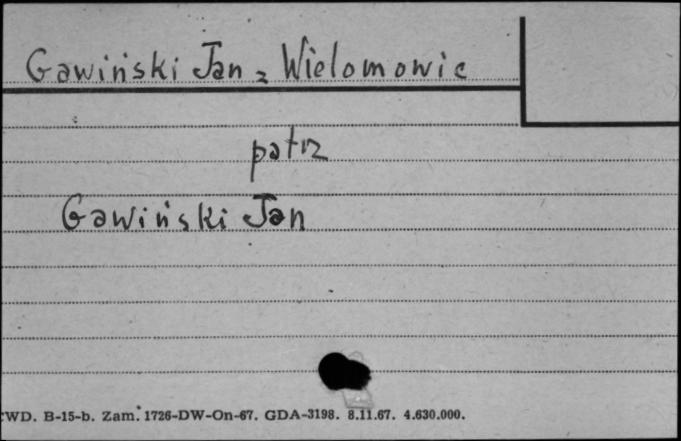 Gawiński Jan z Wielomowic
patrz
Gawiński Jan
WD. B-15-b. Zam. 1726-DW-On-67. GDA-3198. 8.11.67. 4.630.000.